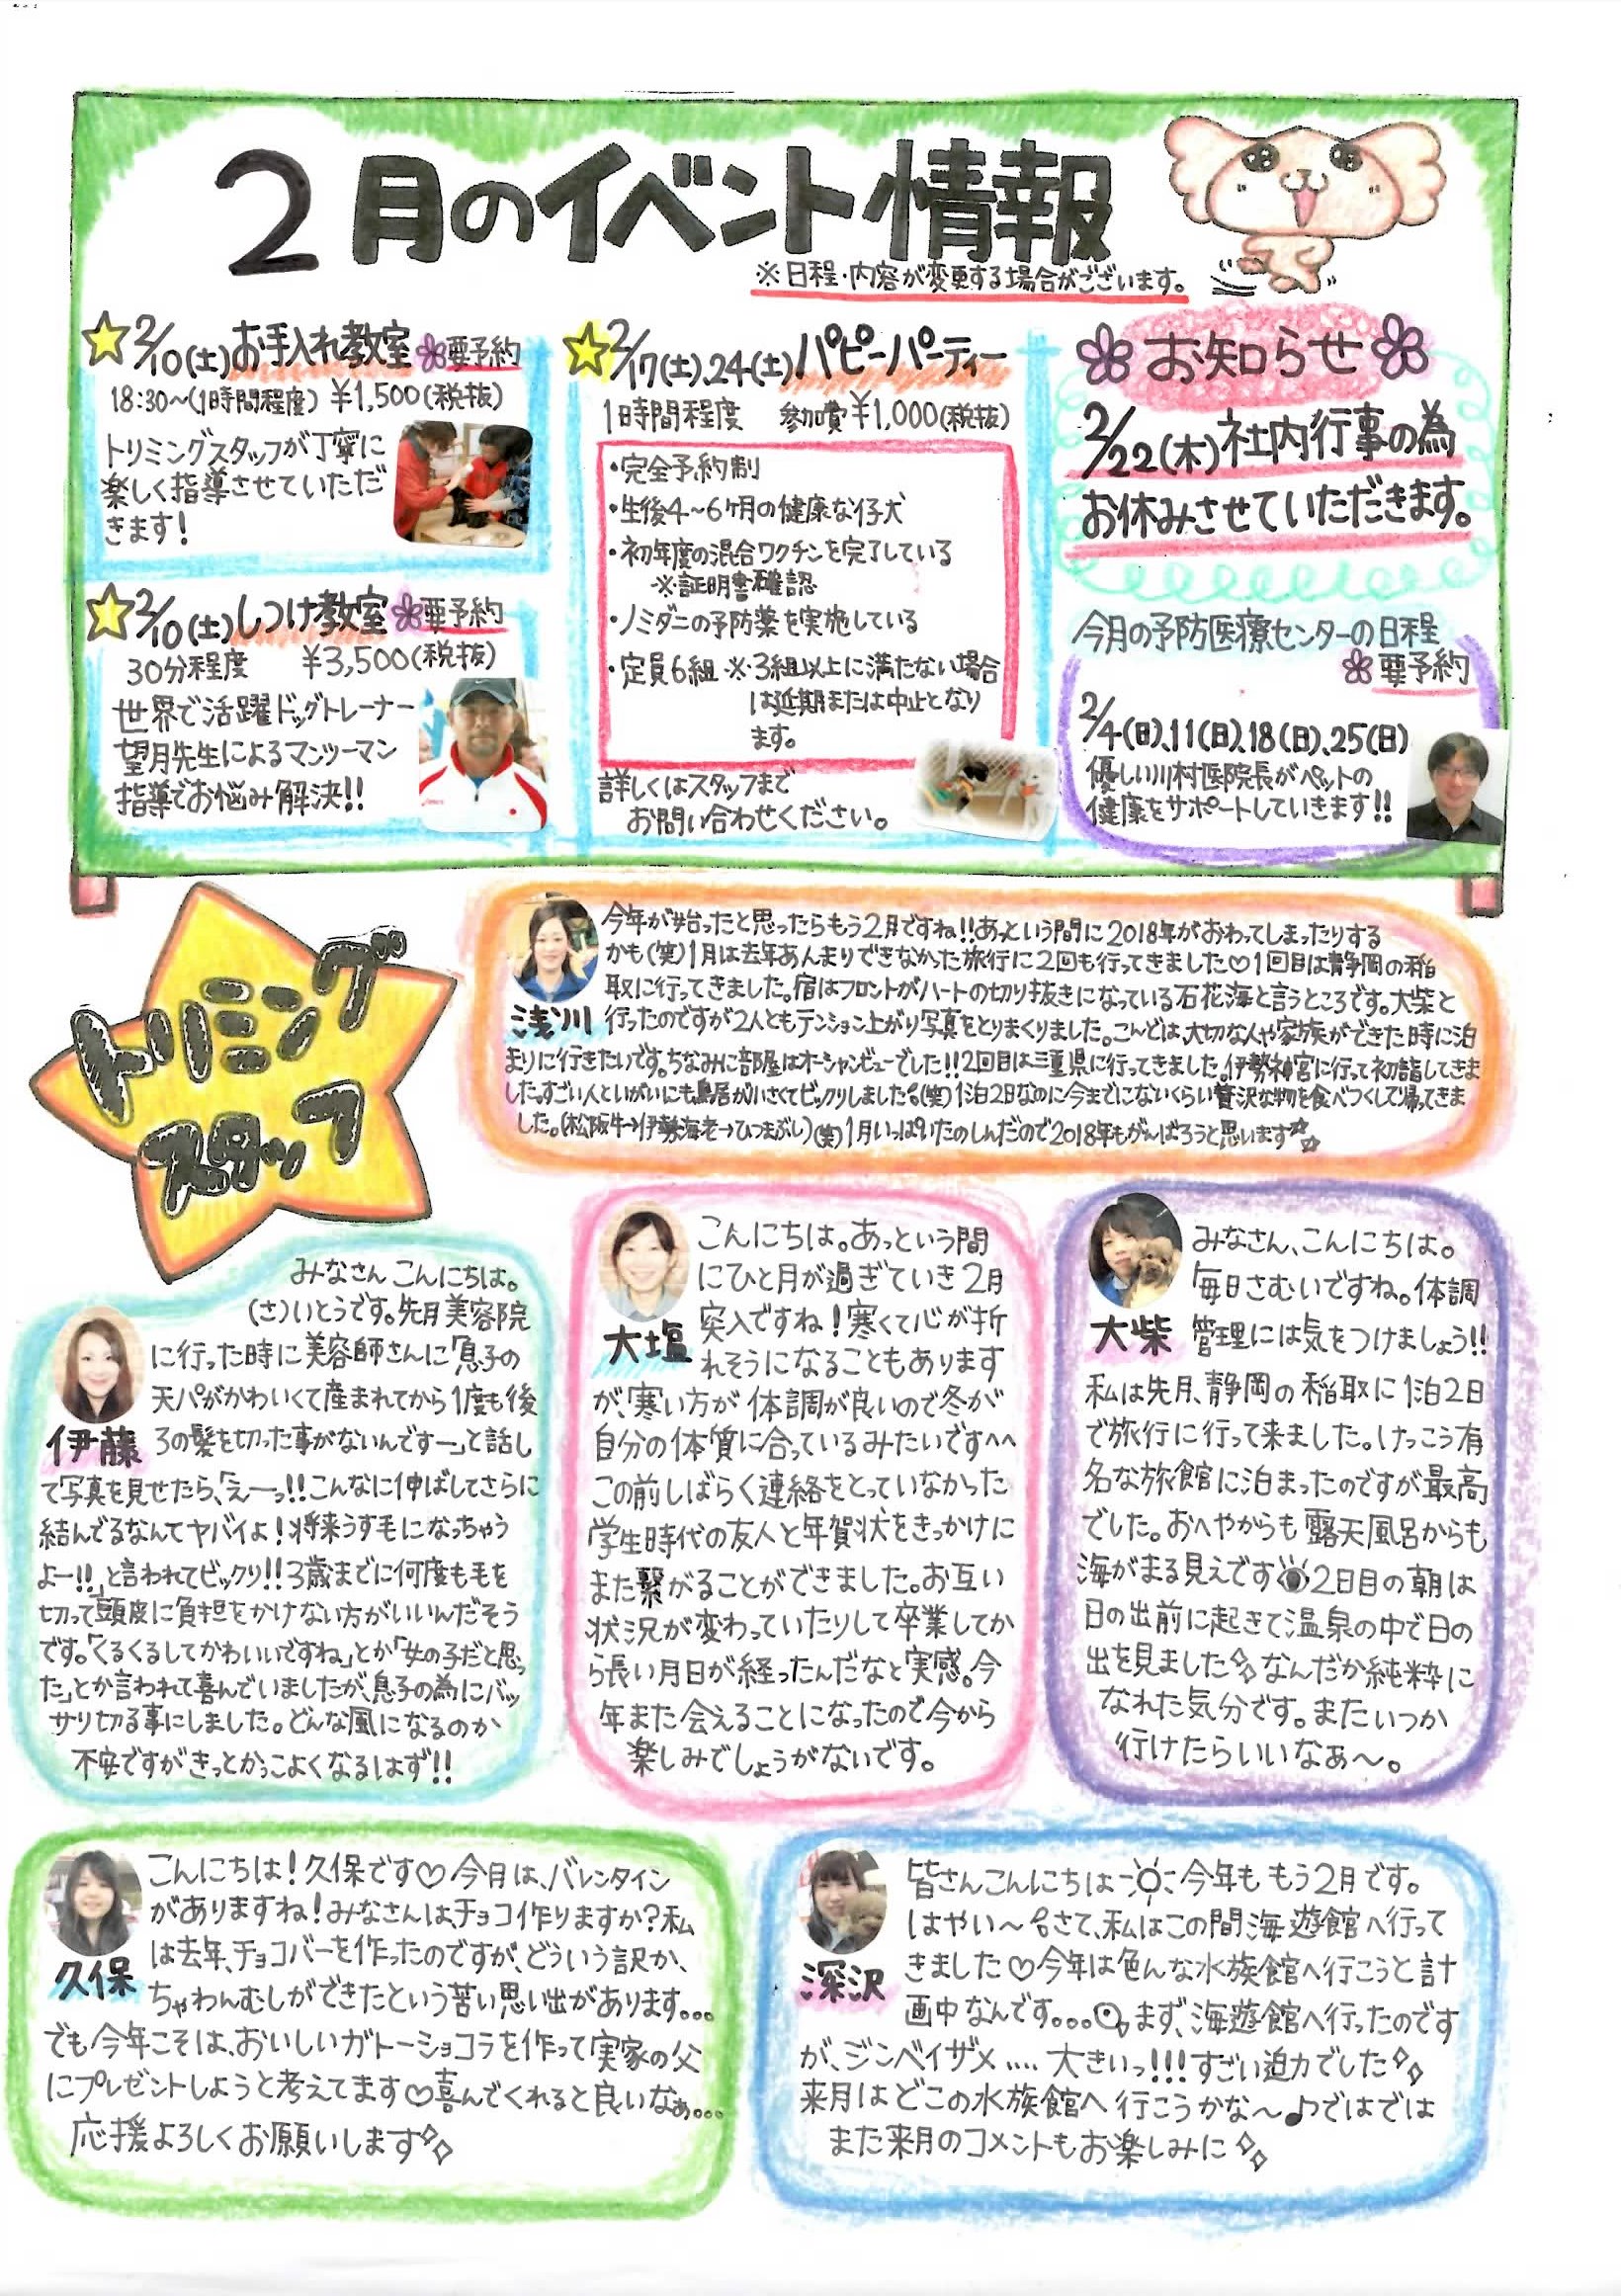 2月のイベント情報
※日程・内容が変更する場合がございます。
2/10(土)お手入れ教室 要予約
18:30〜(1時間程度) ¥1,500(税抜)
トリミングスタッフが丁寧に
楽しく指導させていただ
きます!
2/10(土)しつけ教室 要予約
30分程度 ¥3,500(税抜)
世界で活躍ドッグトレーナー
望月先生によるマンツーマン
指導でお悩み解決!!
2/17(土)、24(土)パピーパーティー
1時間程度 参加費¥1,000(税抜)
・完全予約制
・生後4〜6ヶ月の健康な仔犬
・初年度の混合ワクチンを完了している
※証明書確認
・ノミダニの予防薬を実施している
・定員6組 ※3組以上に満たない場合
は延期または中止となり
ます。
詳しくはスタッフまで
お問い合わせください。
お知らせ
2/22(木)社内行事の為
お休みさせていただきます。
今月の予防医療センターの日程
要予約
2/4(日)、11(日)、18(日)、25(日)
優しい川村医院長がペットの
健康をサポートしていきます!!
トリミング
スタッフ
今年が始ったと思ったらもう2月ですね!!あっという間に2018年がおわってしまったりする
かも(笑)1月は去年あんまりできなかった旅行に2回も行ってきました♡1回目は静岡の稲
取に行ってきました。宿はフロントがハートの切り抜きになっている石花海と言うところです。大柴と
浅川 行ったのですが2人ともテンション上がり写真をとりまくりました。こんどは、大切な人や家族ができた時に泊
まりに行きたいです。ちなみに部屋はオーシャンビューでした!!2回目は三重県に行ってきました。伊勢神宮に行って初詣してきま
した。すごい人といがいにも鳥居が小さくてビックリしました(笑)1泊2日なのに今までにないくらい贅沢な物を食べつくして帰ってきま
した。(松阪牛→伊勢海老→ひつまぶし)(笑)1月いっぱいたのしんだので2018年もがんばろうと思います☆
みなさんこんにちは。
(さ)いとうです。先月美容院
に行った時に美容師さんに「息子の
天パがかわいくて産まれてから1度も後
伊藤 ろの髪を切った事がないんですー」と話し
て写真を見せたら、「えーっ!!こんなに伸ばしてさらに
結んでるなんてヤバイよ!将来うす毛になっちゃう
よー!!」と言われてビックリ!!3歳までに何度も毛を
切って頭皮に負担をかけない方がいいんだそう
です。「くるくるしてかわいいですね」とか「女の子だと思っ
た」とか言われて喜んでいましたが、息子の為にバッ
サリ切る事にしました。どんな風になるのか
不安ですがきっとかっこよくなるはず!!
こんにちは。あっという間
にひと月が過ぎていき2月
突入ですね!寒くて心が折
大塩 れそうになることもあります
が、寒い方が体調が良いので冬が
自分の体質に合っているみたいです^^
この前しばらく連絡をとっていなかった
学生時代の友人と年賀状をきっかけに
また繋がることができました。お互い
状況が変わっていたりして卒業してか
ら長い月日が経ったんだなと実感。今
年また会えることになったので今から
楽しみでしょうがないです。
みなさん、こんにちは。
毎日さむいですね。体調
大柴 管理には気をつけましょう!!
私は先月、静岡の稲取に1泊2日
で旅行に行って来ました。けっこう有
名な旅館に泊まったのですが最高
でした。おへやからも露天風呂からも
海がまる見えです 2日目の朝は
日の出前に起きて温泉の中で日の
出を見ました なんだか純粋に
なれた気分です。またいつか
行けたらいいなぁ〜。
こんにちは!久保です♡今月は、バレンタイン
がありますね!みなさんは、チョコ作りますか?私
は去年、チョコバーを作ったのですが、どういう訳か、
久保 ちゃわんむしができたという苦い思い出があります。。。
でも今年こそは、おいしいガトーショコラを作って実家の父
にプレゼントしようと考えてます♡喜んでくれると良いなぁ。。。
応援よろしくお願いします
皆さんこんにちは 今年も もう2月です。
はやい〜 さて、私はこの間海遊館へ行って
きました♡今年は色んな水族館へ行こうと計
深沢 画中なんです。。。 まず、海遊館へ行ったのです
が、ジンベイザメ.... 大きいっ!!!すごい迫力でした
来月はどこの水族館へ行こうかな〜♪ではでは
また来月のコメントもお楽しみに